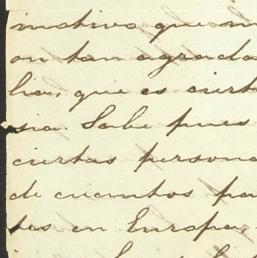 motivo que m
on tan agrada
lia, que es ciert
sia. Sabe pues
ciertas persona
de cuantos pa
tes en Europa,